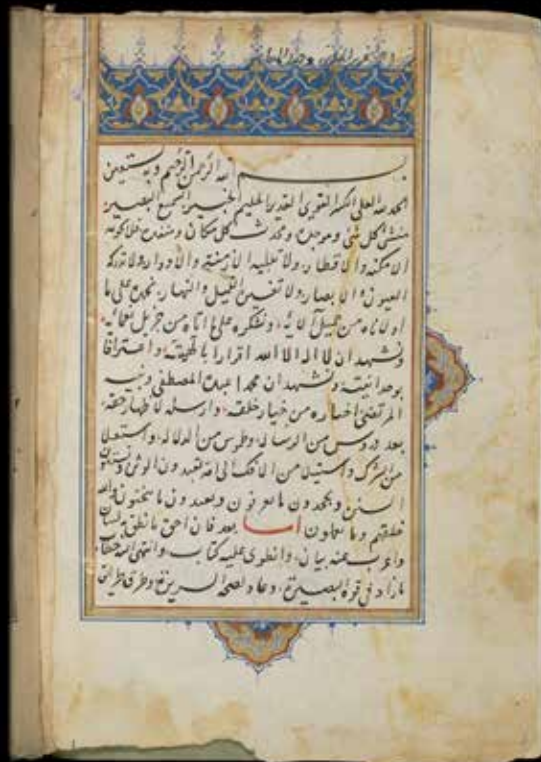 بسم الله الرحمن الرحيم وبه نستعين
الحمد لله العلي الكبير القوي القدير العليم الخبير السميع البصير
منشئ كل شئ وموجده ومحدث كل مكان ومنفده
الامكنه والاقطار ولا تبليه الازمنة والادوار ولا تدركه
العيون والابصار ولا تغيره الليل والنهار نحمده على ما
اولاناه من جميل آلائه ونشكره على ما اتاه من جزيل نعمائه
ونشهد ان لا اله الا الله اقرارا بالهيته واعترافا
بوحدانيته ونشهد ان محمدا عبده المصطفى ونبيه
المرتضى اختاره من خيار خلقه وارسله لاظهار حقه
بعد دروس من الرسالة وطموس من الدلاله واستعلا
من الشرك واستيلا من الافك الى امة يعبدون الوثن
السنن ويجحدون ما يعرفون ويعبدون ما ينحتون والله
خلقهم وما يعملون اما بعد فان احق ما نطق به لسان
واعرب عنه بيان وانطوى عليه كتاب وانتهى اليه خطاب
ما زاد في قوة البصيرة وعاد لصحة السريرة وطرق طرائق